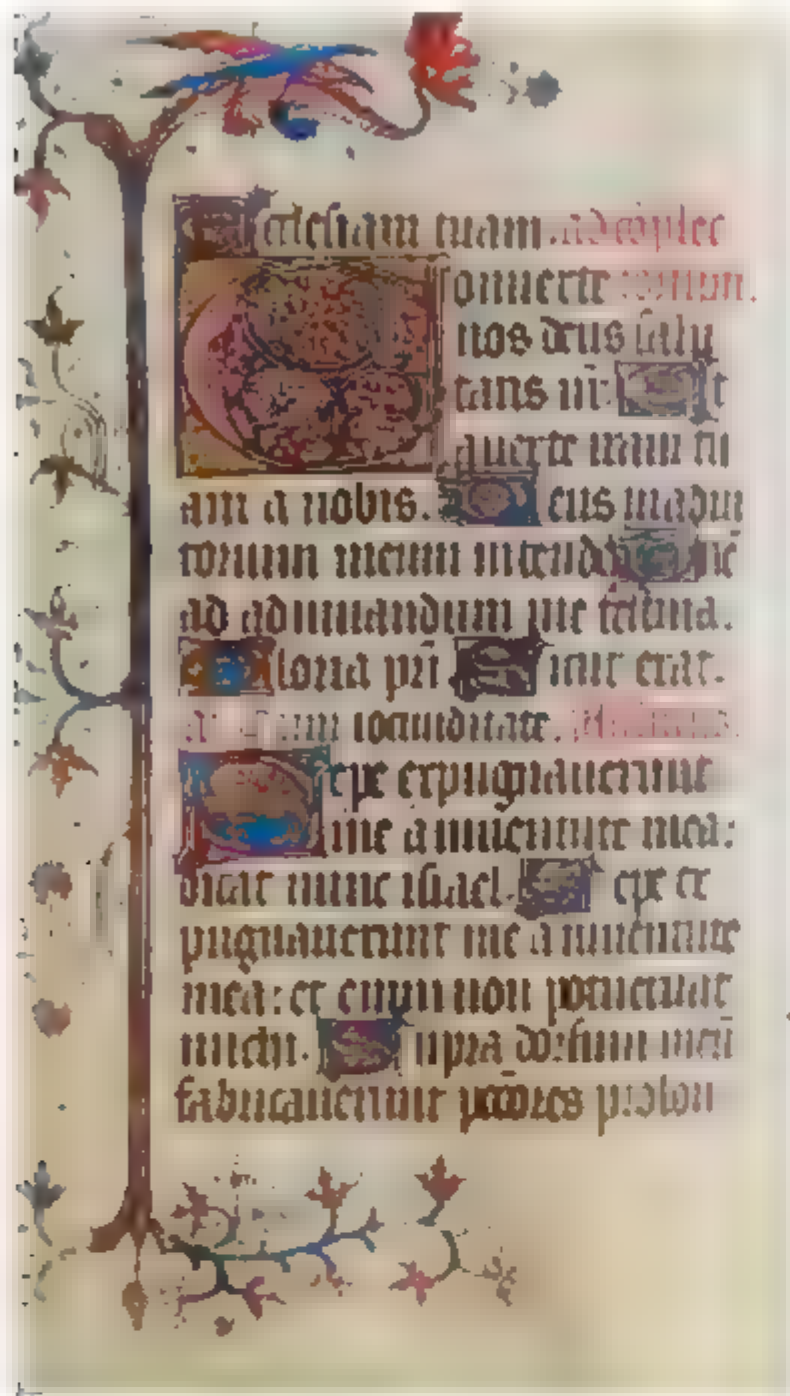 ecclesiam tuam. ad cõplet
Conuerte
nos deus salu
taris nr̃ Et
auerte iram tu
am a nobis. Deus in adiu
torium meum intende Dñe
ad adiuuandum me festina.
Gloria pri Sicut erat.
iocunditate.
Sepe expugnauerunt
me a iuuentute mea:
dicat nunc israel. Sepe ex
pugnauerunt me a iuuentute
mea: et enim non potuerunt
michi. Supra dorsum meũ
fabricauerunt pctores prolon